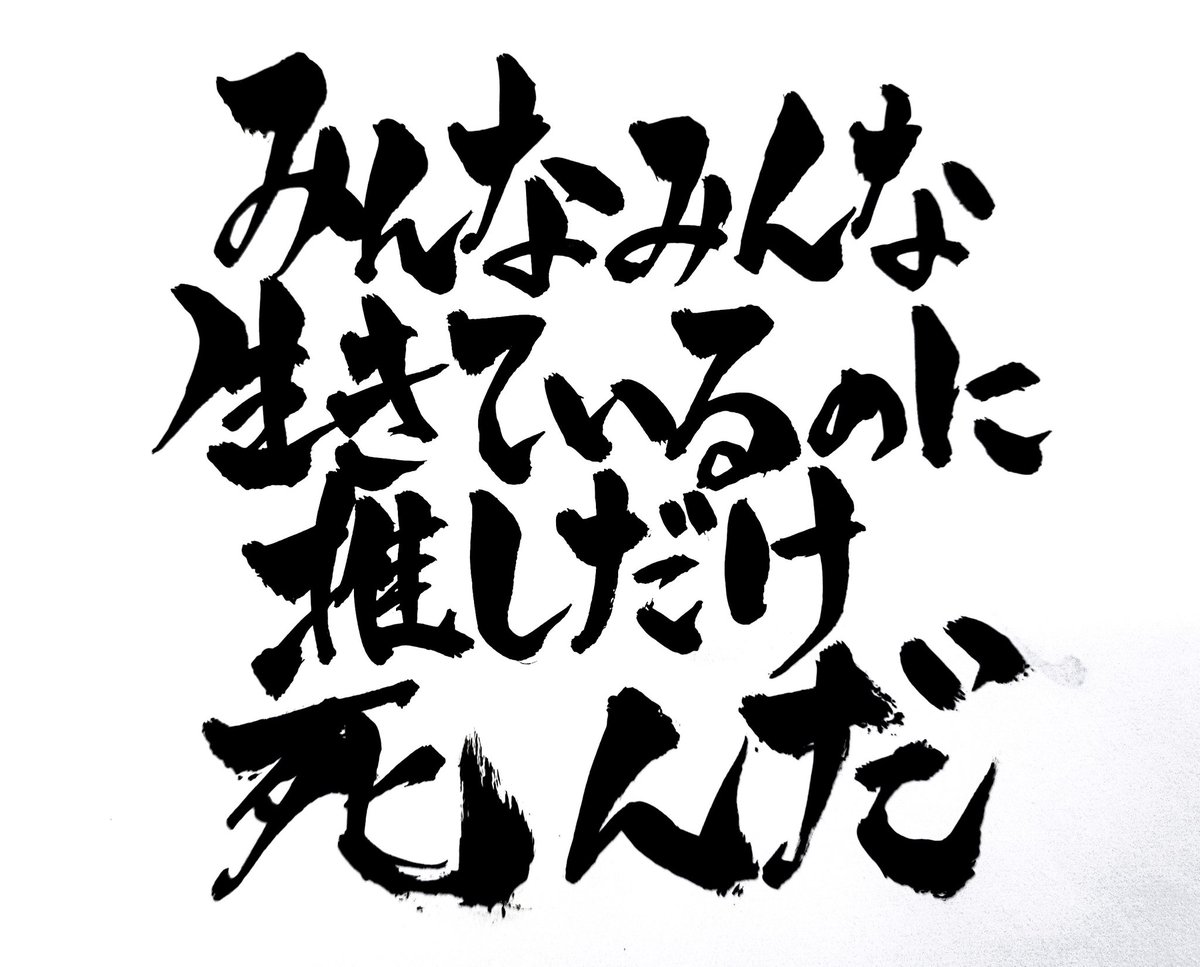 みんなみんな
生きているのに
推しだけ
死んだ